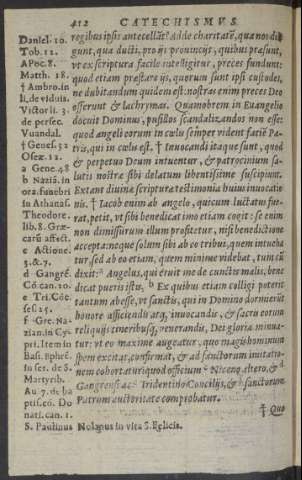 412 CATECHISMVS.
Daniel. 10.
Tob. 12.
APoc. 8.
Matth. 18.
† Ambro. in
li. de viduis.
Victor li. 3.
de persec.
Vuandal.
† Genes. 32
Oseæ. 12.
a Gene. 48
b Nazā. in
ora. funebri
in Athanas.
Theodore.
lib. 8. Græ-
carū affect.
e Actione.
5. & 7.
d Gangrē.
Cō. can. 20.
e Tri. Cōc.
ses. 25.
f Gre. Na-
zian. in Cy-
pri. Item in
Bas. Ephrē.
in ser. de S.
Martyrib.
Au. 7. de ba
ptis. cō. Do
nati. can. 1.
regibus ipsis antecellāt? adde charitatē, qua nos dili
gunt, qua ducti, pro iis prouinciis, quibus præsunt,
vt ex scriptura facile intelligitur, preces fundunt:
quod etiam præstare iis, quorum sunt ipsi custodes,
ne dubitandum quidem est: nostras enim preces Deo
offerunt & lachrymas. Quamobrem in Euangelio
docuit Dominus, pusillos scandalizandos non esse:
quod angeli eorum in cœlis semper vident faciē Pa-
tris, qui in cœlis est. † Inuocandi itaque sunt, quod
& perpetuo Deum intuentur, & patrocinium sa-
lutis nostræ sibi delatum libentissime suscipiunt.
Extant diuinæ scripturæ testimonia huius inuocatio
nis. † Iacob enim ab angelo, quicum luctatus fue-
rat, petit, vt sibi benedicat imo etiam cogit: se enim
non dimissurum illum profitetur, nisi benedictione
accepta: neque solum sibi ab eo tribui, quem intueba
tur, sed ab eo etiam, quem minime videbat, tum cū
dixit: a Angelus, qui eruit me de cunctis malis, bene
dicat pueris istis, b Ex quibus etiam colligi potest
tantum abesse, vt sanctis, qui in Domino dormierūt
honore afficiendis atq; inuocandis, & sacra eorum
reliquijs cineribusq; venerandis, Dei gloria minua-
tur: vt eo maxime augeatur, quo magis hominum
spem excitat, confirmat, & ad sanctorum imitatio-
nem cohortatur: quod officium c Niceno altero, & d
Gangrensi ac e Tridentino Concilijs, & f sanctorum
Patrum auctoritate comprobatur.
† Quo
S. Paulinus Nolanus in vita S. Felicis.